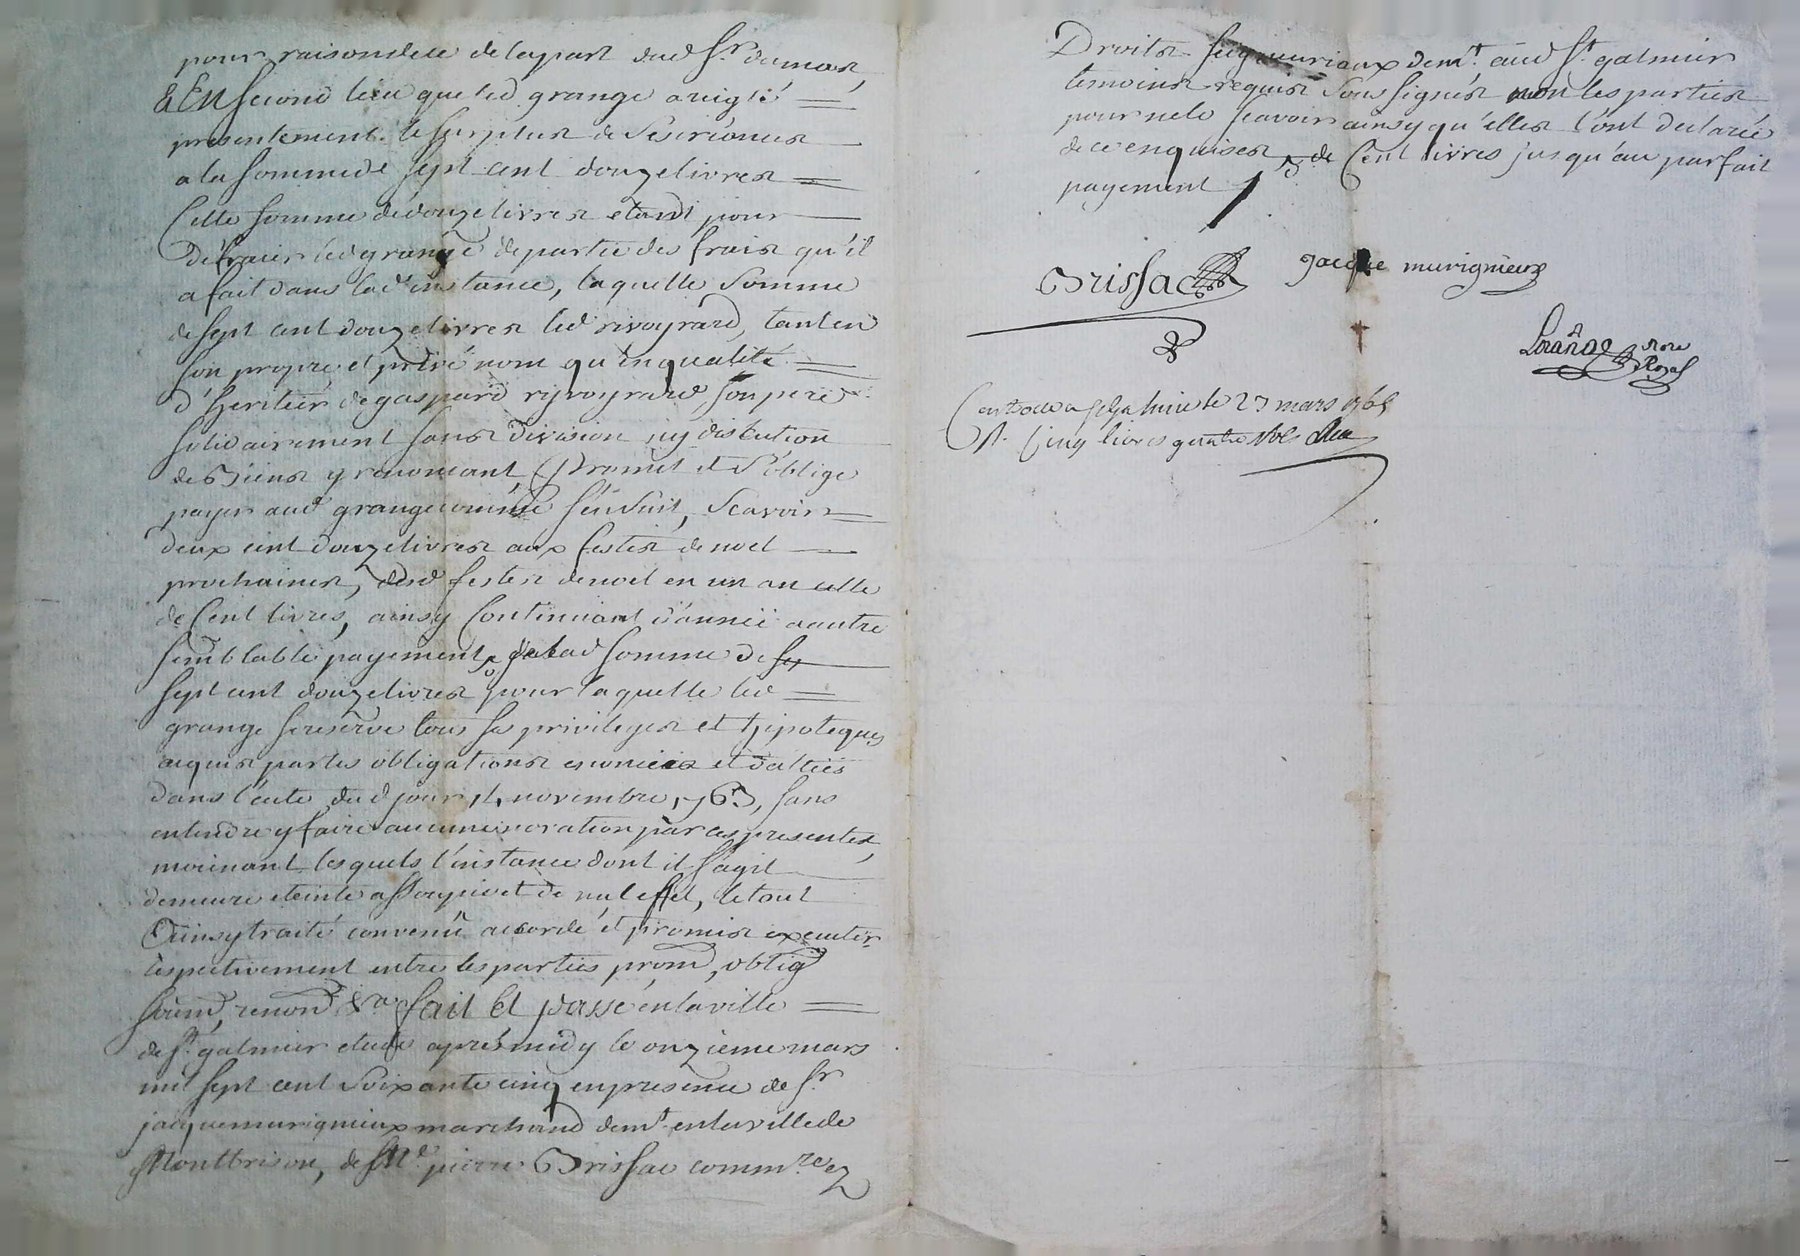 pour raison d'elle de la part dud Sr. dumas,
& En second lieu que led grange a rigié
presentement le surplus de ses iréonces
a la somme de sept cent douze livres
Cette somme de douze livres etant pour
défraier led grange de partie des frais qu'il
a fait dans lad instance, laquelle somme
de sept cent douze livres led rivoyrard, tant en
son propre et privé nom qu'en qualité
d'heritier de gaspard ryvoyrard, son pere
solidairement sans division ny discution
de Biens y renoncant, Promet et s'oblige
payer aud grange comme s'ensuit, scavoir
deux cent douze livres aux festes de noel
prochaines, desd festes de noel en un an celle
de Cent livres, ainsy Continuant d'année a autre
semblable payement, de lad somme de
sept cent douze livres pour laquelle led
grange se reserve tous ses privileges et hipoteques
acquis par les obligations enoncées et dattées
dans l'acte dud jour 14 novembre 1763, sans
entendre y faire aucune novation par ces presentes,
moienant lesquels l'instance dont il s'agit
demeure eteinte assoupie et de nul effet, le tout
Ainsy traité convenû accordé et promis executer
respectivement entre les parties, prom, oblig
soum, renon &a fait et passé en la ville
de St. galmier etude après midy le onzieme mars
mil sept cent soixante cinq en presence de Sr
jacque murigneux marchand demt. en la ville de
Montbrison, de Me pierre Brissac commre ez
Droits seigneuriaux demt. aud St. galmier
temoins requis Soussignés non les parties
pour ne le scavoir ainsy qu'elles l'ont declarée
de ce enquises, de Cent livres jusqu'au parfait
payement
Brissac
Jacque murigneux
nore Royal
Controllé a St galmier le 23 mars 1765
R. Cinq livres quatre sols